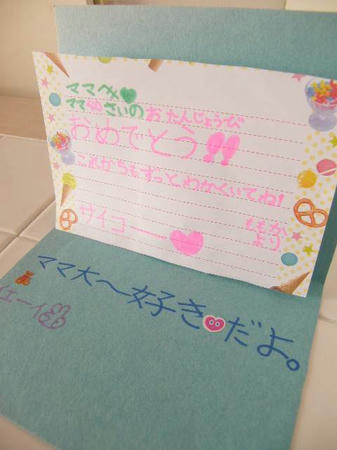 ママへ♥
ママ さいの おたんじょうび
おめでとう!!
これからもずっとわかくいてね!
サイコー――♥
ともか
より
ママ大〜好きだよ。
イエーイ